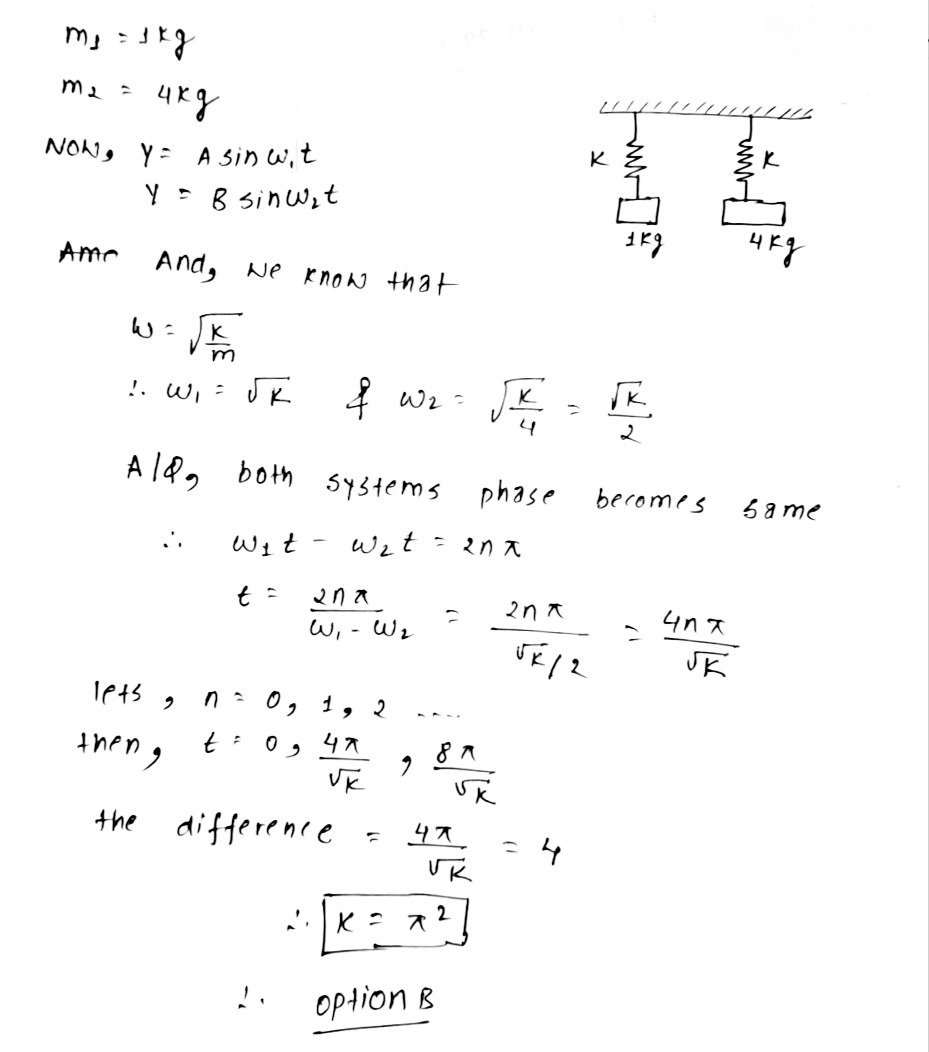 m₁ = 1kg
m₂ = 4kg
NOW, Y = A sin ω₁t
Y = B sin ω₂t
K K
1kg 4kg
And, we know that
ω = √(K/m)
∴ ω₁ = √K & ω₂ = √(K/4) = √K/2
A/Q, both systems phase becomes same
∴ ω₁t - ω₂t = 2nπ
t = 2nπ/(ω₁ - ω₂) = 2nπ/(√K/2) = 4nπ/√K
lets, n = 0, 1, 2 ....
then, t = 0, 4π/√K, 8π/√K
the difference = 4π/√K = 4
∴ K = π²
∴ option B